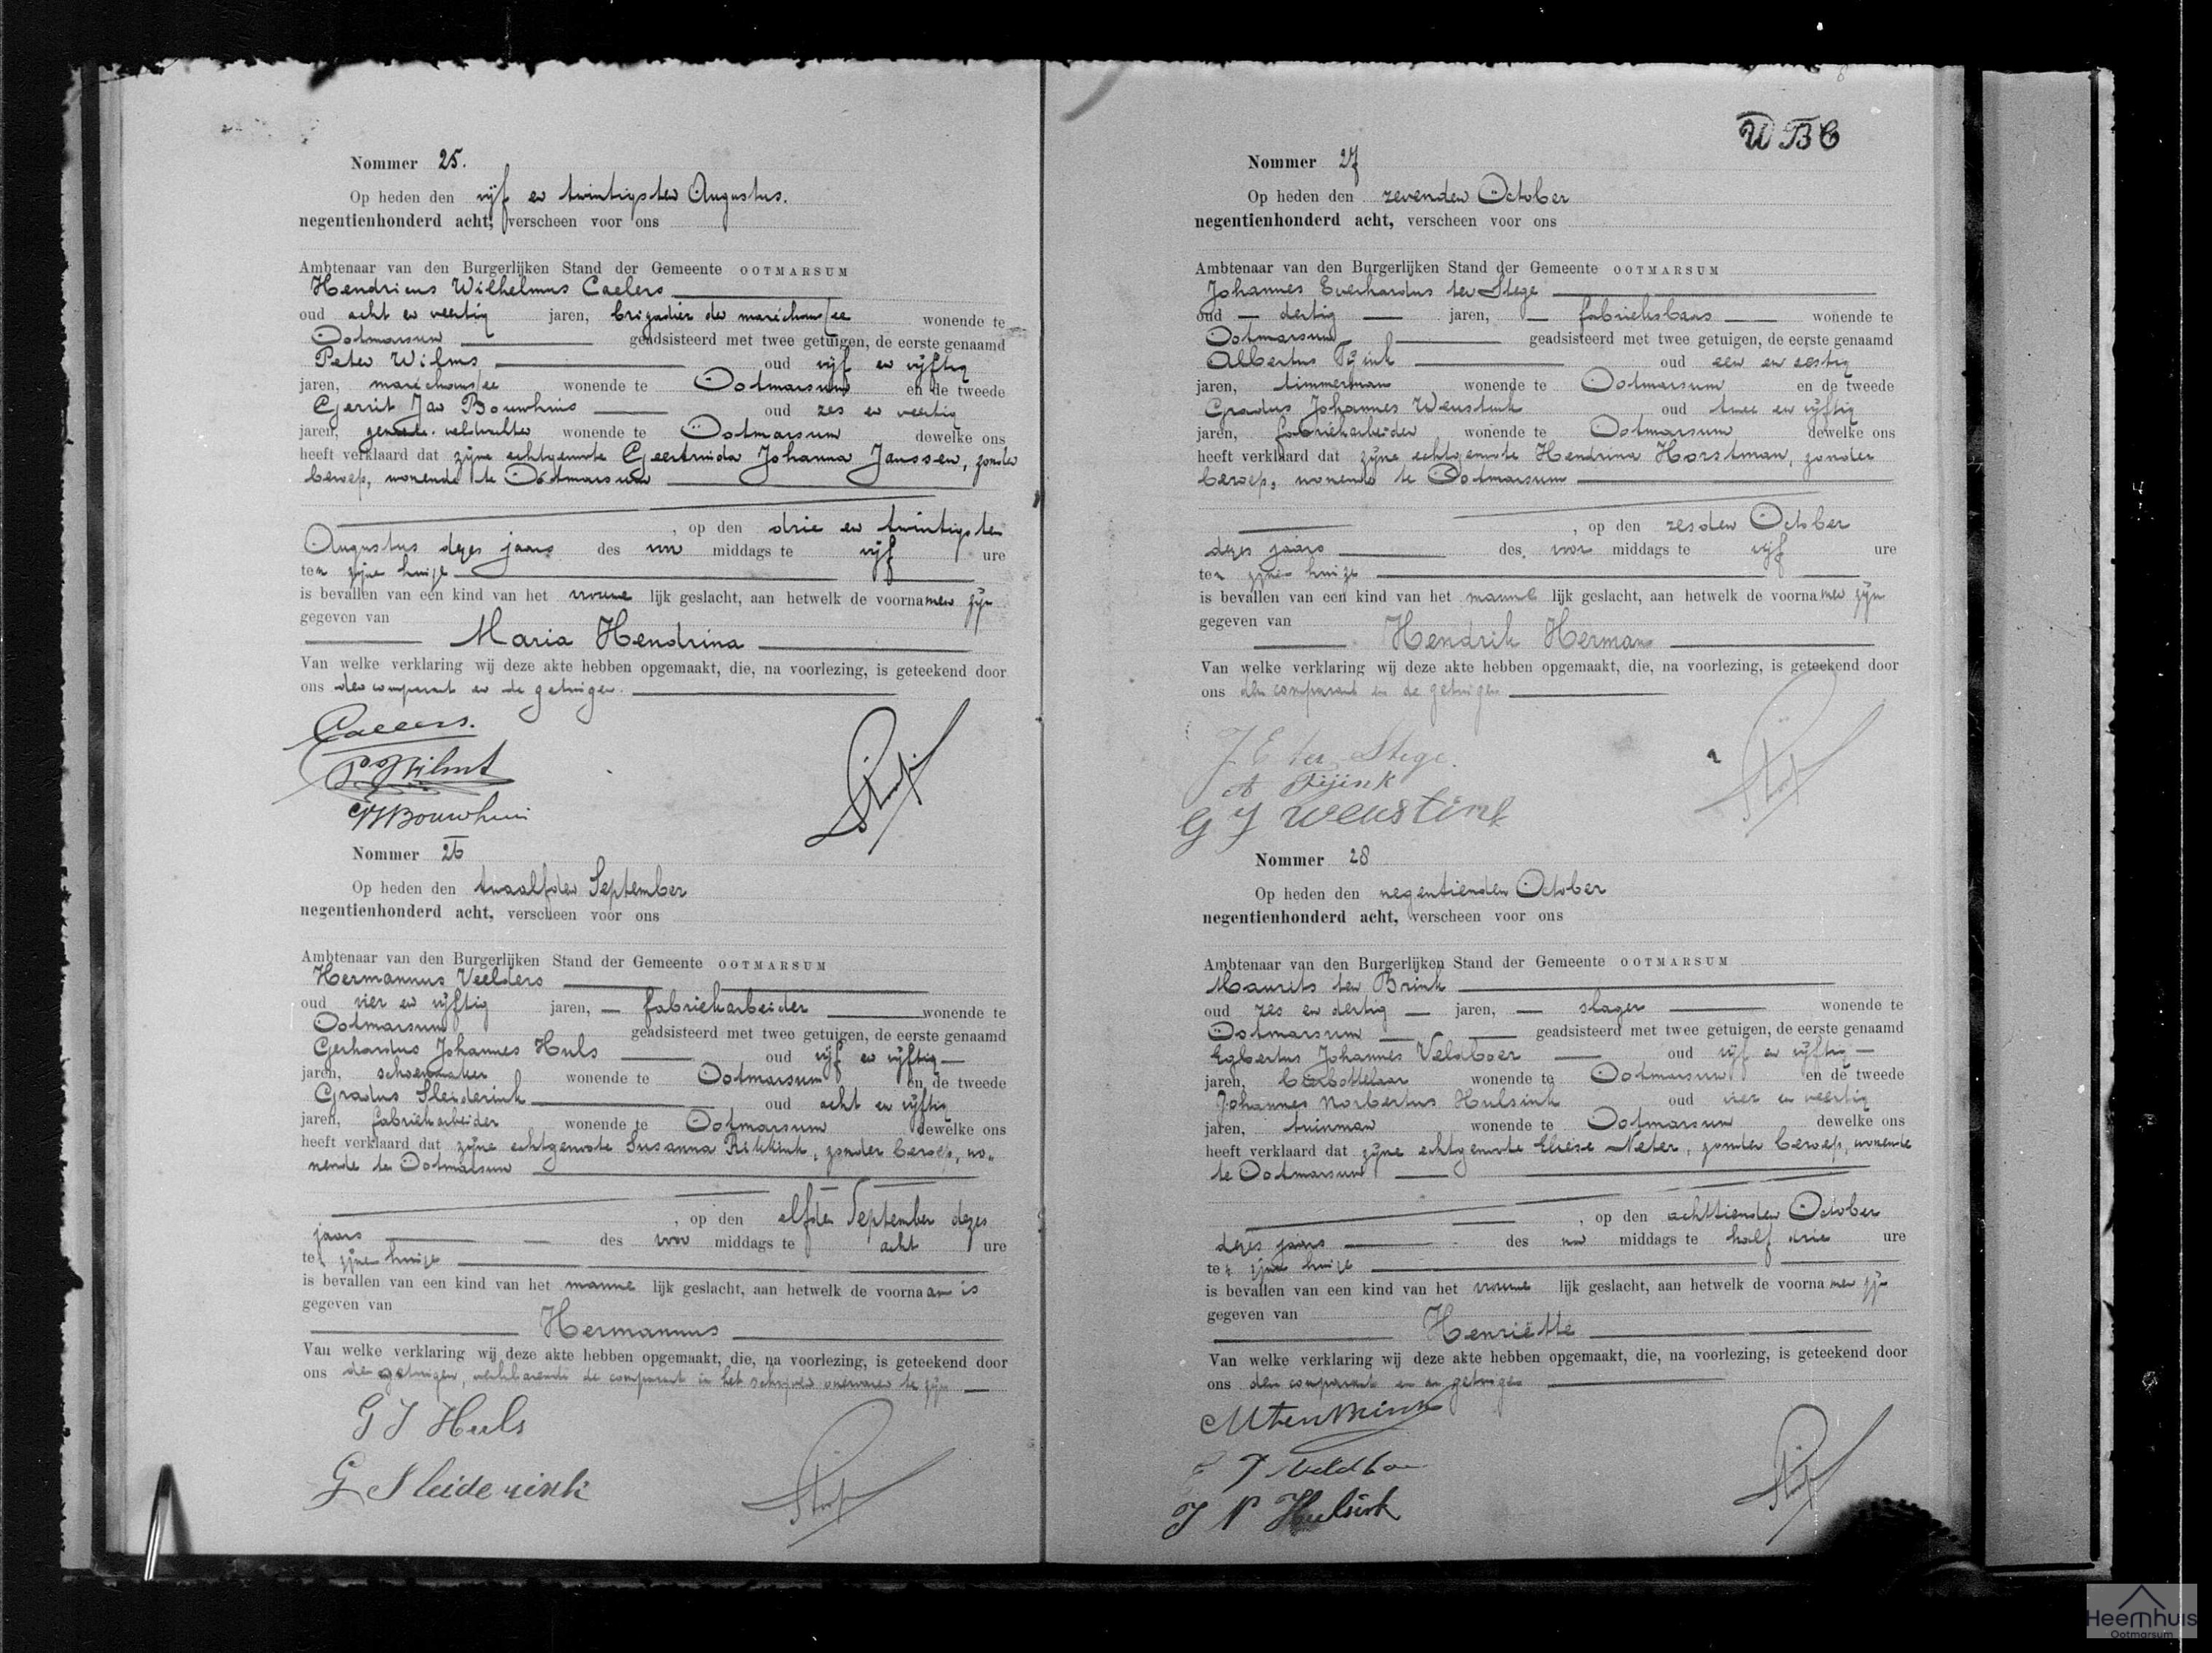 Nommer 25.
Op heden den vijf en twintigsten Augustus.
negentienhonderd acht, verscheen voor ons
Ambtenaar van den Burgerlijken Stand der Gemeente OOTMARSUM
Hendricus Wilhelmus Caelers
oud acht en veertig jaren, brigadier der maréchaussee wonende te
Ootmarsum geadsisteerd met twee getuigen, de eerste genaamd
Peter Wilms oud vijf en vijftig
jaren, maréchaussee wonende te Ootmarsum en de tweede
Gerrit Jan Bouwhuis oud zes en veertig
jaren, gemeente-veldwachter wonende te Ootmarsum dewelke ons
heeft verklaard dat zijne echtgenoote Geertruida Johanna Janssen, zonder
beroep, wonende te Ootmarsum
, op den drie en twintigsten
Augustus dezes jaars des voor middags te vijf ure
ten zijne huize
is bevallen van een kind van het vrouwe lijk geslacht, aan hetwelk de voornamen zijn
gegeven van
Maria Hendrina
Van welke verklaring wij deze akte hebben opgemaakt, die, na voorlezing, is geteekend door
ons den comparant en de getuigen.
Caelers.
P. Wilms
GJ Bouwhuis
Nommer 26
Op heden den twaalfden September
negentienhonderd acht, verscheen voor ons
Ambtenaar van den Burgerlijken Stand der Gemeente OOTMARSUM
Hermannus Veelders
oud vier en vijftig jaren, fabriekarbeider wonende te
Ootmarsum geadsisteerd met twee getuigen, de eerste genaamd
Gerhardus Johannes Huls oud vijf en vijftig
jaren, schoenmaker wonende te Ootmarsum en de tweede
Gradus Sleiderink oud acht en vijftig
jaren, fabriekarbeider wonende te Ootmarsum dewelke ons
heeft verklaard dat zijne echtgenoote Susanna Rikkink, zonder beroep, wo„
nende te Ootmarsum
, op den elfden September dezes
jaars des voor middags te acht ure
ter zijne huize
is bevallen van een kind van het manne lijk geslacht, aan hetwelk de voornaam is
gegeven van
Hermannus
Van welke verklaring wij deze akte hebben opgemaakt, die, na voorlezing, is geteekend door
ons de getuigen, verklarende de comparant in het schrijven onervaren te zijn
G J Huls
G Sleiderink
UBC
Nommer 27
Op heden den zevenden October
negentienhonderd acht, verscheen voor ons
Ambtenaar van den Burgerlijken Stand der Gemeente OOTMARSUM
Johannes Everhardus ter Stege
oud dertig jaren, fabrieksbaas wonende te
Ootmarsum geadsisteerd met twee getuigen, de eerste genaamd
Albertus Tijink oud een en zestig
jaren, timmerman wonende te Ootmarsum en de tweede
Gradus Johannes Weustink oud twee en vijftig
jaren, fabriekarbeider wonende te Ootmarsum dewelke ons
heeft verklaard dat zijne echtgenoote Hendrina Horstman, zonder
beroep, wonende te Ootmarsum
, op den zesden October
dezes jaars des voor middags te vijf ure
ter zijne huize
is bevallen van een kind van het manne lijk geslacht, aan hetwelk de voornamen zijn
gegeven van
Hendrik Herman
Van welke verklaring wij deze akte hebben opgemaakt, die, na voorlezing, is geteekend door
ons den comparant en de getuigen
J E ter Stege.
A Tijink
G J Weustink
Nommer 28
Op heden den negentienden October
negentienhonderd acht, verscheen voor ons
Ambtenaar van den Burgerlijken Stand der Gemeente OOTMARSUM
Maurits ten Brink
oud zes en dertig jaren, slager wonende te
Ootmarsum geadsisteerd met twee getuigen, de eerste genaamd
Egbertus Johannes Veldboer oud vijf en vijftig
jaren, bierbottelaar wonende te Ootmarsum en de tweede
Johannes Norbertus Hulsink oud vier en veertig
jaren, tuinman wonende te Ootmarsum dewelke ons
heeft verklaard dat zijne echtgenoote Eliese Neter, zonder beroep, wonende
te Ootmarsum
, op den achttienden October
dezes jaars des na middags te half drie ure
ter zijne huize
is bevallen van een kind van het vrouwe lijk geslacht, aan hetwelk de voornamen zijn
gegeven van
Henriëtte
Van welke verklaring wij deze akte hebben opgemaakt, die, na voorlezing, is geteekend door
ons den comparant en de getuigen
M ten Brink
E J Veldboer
J N Hulsink
Heemhuis
Ootmarsum